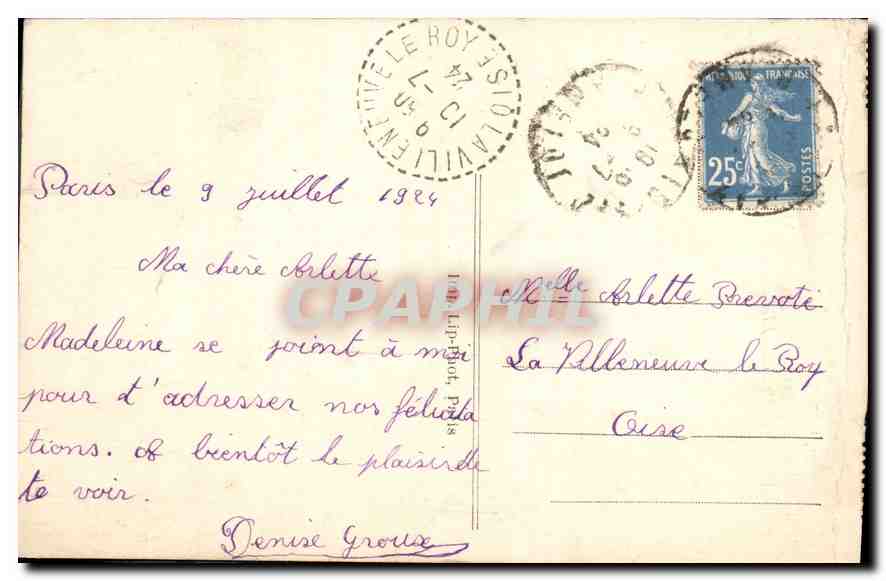 LA VILLENEUVE LE ROY OISE
9 30
10 -7
24
RÉPUBLIQUE FRANÇAISE
25c
POSTES
Paris le 9 juillet 1924
Ma chère Arlette
Madeleine se joint à moi
pour t'adresser nos félicita
tions. A bientôt le plaisir de
te voir.
Denise Groux
Lip-Phot, Paris
CPAPHIL
Melle Arlette Prevoté
La Villeneuve le Roy
Oise